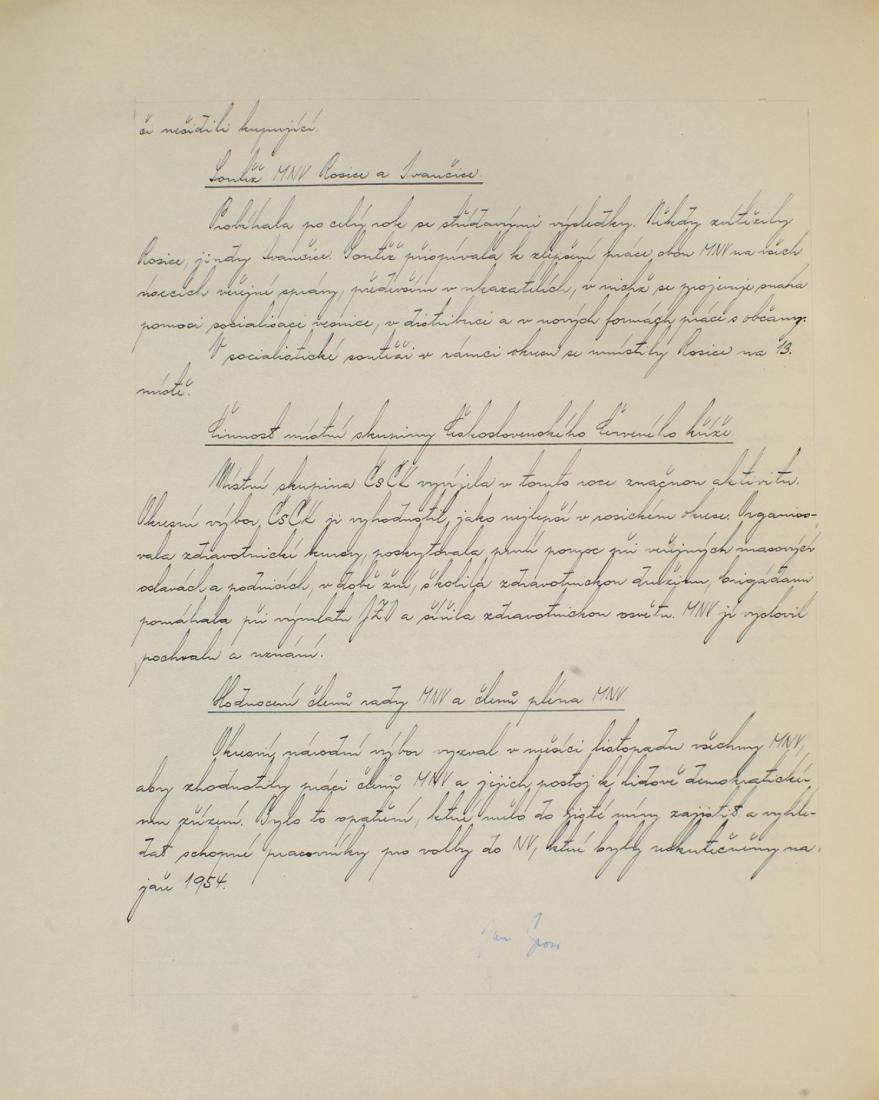 či nešidili kupující.
Soutěž MNV Rosice a Ivančice.
Probíhala po celý rok se střídavými výsledky. Někdy zvítězily
Rosice, jindy Ivančice. Soutěž přispívala k zlepšení práce obou MNV na všech
úsecích veřejné správy, především v ukazatelích, v nichž se projevuje snaha
pomoci socialisaci vesnice, v distribuci a v nových formách práce s občany.
V socialistické soutěži v rámci okresu se umístily Rosice na 13.
místě.
Činnost místní skupiny Československého Červeného kříže.
Místní skupina ČsČK vyvíjela v tomto roce značnou aktivitu.
Okresní výbor ČsČK ji vyhodnotil jako nejlepší v rosickém okrese. Organiso-
vala zdravotnické kursy, poskytovala první pomoc při veřejných masových
oslavách a podnicích, v době žní, školila zdravotnickou družinu, brigádami
pomáhala při výmlatu JZD a šířila zdravotnickou osvětu. MNV jí vyslovil
pochvalu a uznání.
Hodnocení členů rady MNV a členů pléna MNV
Okresní národní výbor vyzval v měsíci listopadu všechny MNV,
aby zhodnotily práci členů MNV a jejich postoj k lidově demokratické-
mu zřízení. Bylo to opatření, které mělo do jisté míry zajistit a vyhle-
dat schopné pracovníky pro volby do NV, které byly uskutečněny na
jaře 1954.
Jan